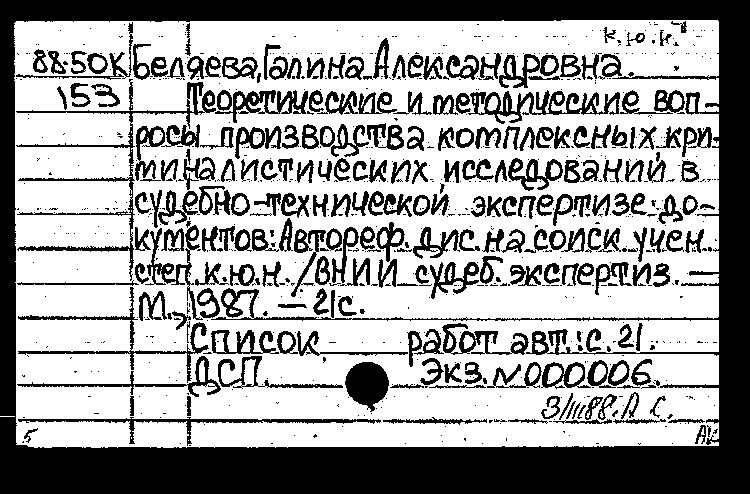 к.ю.н.
88-50К Беляева, Галина Александровна.
153 Теоретические и методические воп-
росы производства комплексных кри-
миналистических исследований в
судебно-технической экспертизе до-
кументов: Автореф. дис. на соиск. учен.
степ. к.ю.н. / ВНИИ судеб. экспертиз. —
М., 1987. — 21 с.
Список работ авт.: с. 21.
ДСП. Экз. № 000006.
3/III88. А С.
5